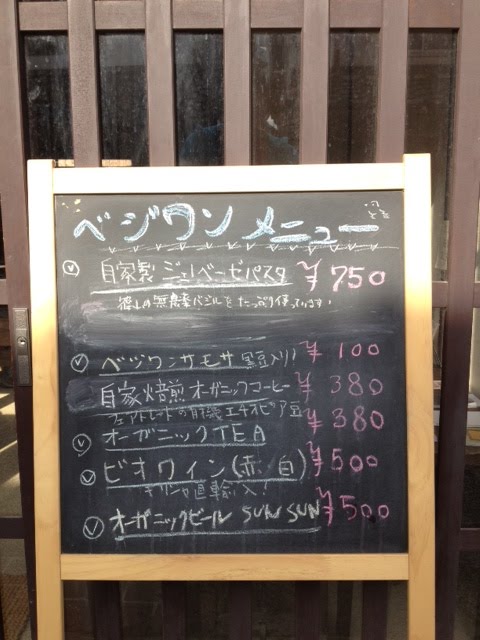 ベジワン メニュー
自家製 ジェノベーゼパスタ ¥750
無農薬バジルをたっぷり使っています!
ベジワンサモサ 黒豆入り! ¥100
自家焙煎 オーガニックコーヒー ¥380
フェアトレードの有機エチオピア豆
オーガニックTEA ¥380
ビオワイン(赤 白) ¥500
直輸入!
オーガニックビール SUN SUN ¥500